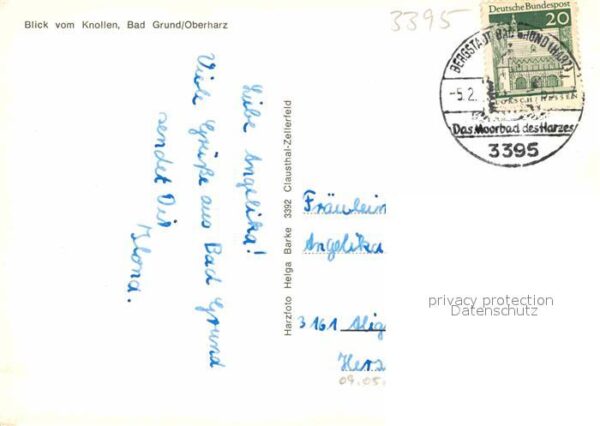 Blick vom Knollen, Bad Grund/Oberharz
3395
Deutsche Bundespost
20
BERGSTADT BAD GRUND (HARZ) 1
-5.2.
LORSCH/HESSEN
Das Moorbad des Harzes
3395
Liebe Angelika!
Viele Grüße aus Bad Grund
sendet Dir
Ilona.
Harzfoto Helga Barke 3392 Clausthal-Zellerfeld
Fräulein
Angelika
3161
privacy protection
Datenschutz
09.05.